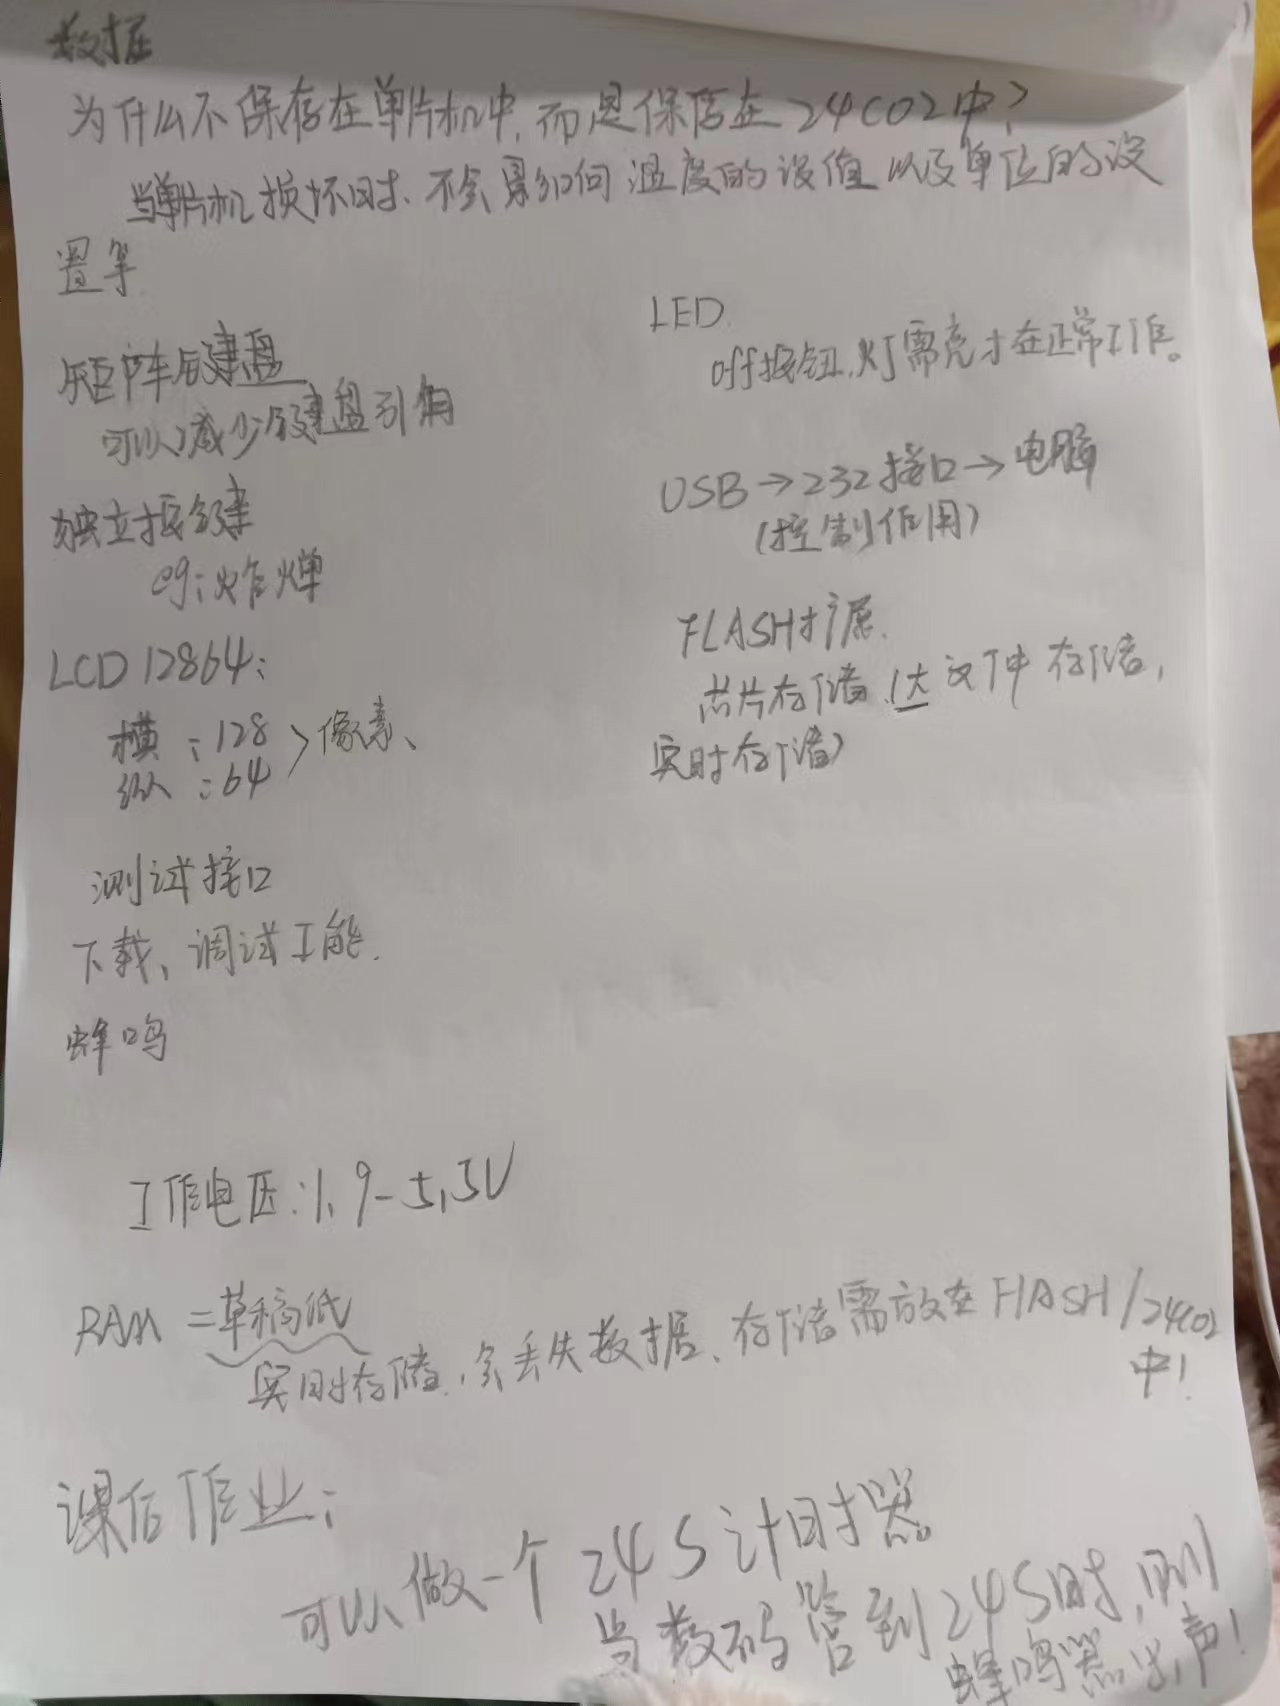 数据
为什么不保存在单片机中,而是保存在24C02中?
当单片机损坏时、不会影响 温度的设值 以及单位的设
置等
矩阵键盘
可以减少键盘引角
独立按键
eg:炸弹
LCD 12864:
横:128 > 像素、
纵:64
测试接口
下载、调试工能.
蜂鸣
LED.
off按钮,灯需亮才在正常工作。
USB→232接口→电脑
(控制作用)
FLASH扩展.
芯片存储.(大 文件 存储,
实时存储)
工作电压:1.9-5.5V
RAM =草稿纸
实时存储.会丢失数据、存储需放在FLASH/24C02
中!
课后作业:
可以做一个24S计时器
当数码管到24S时,则
蜂鸣器出声!